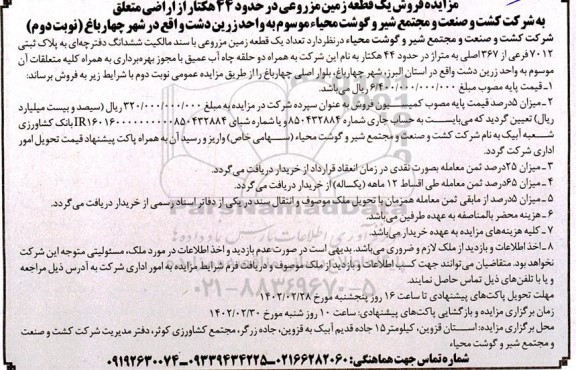 مزایده فروش یک قطعه زمین مزروعی در حدود ۴۴ هکتار از اراضی متعلق
به شرکت کشت و صنعت و مجتمع شیر و گوشت محیاء موسوم به واحد زرین دشت واقع در شهر چهارباغ (نوبت دوم)
شرکت کشت و صنعت و مجتمع شیر و گوشت محیاء در نظر دارد تعداد یک قطعه زمین مزروعی با سند مالکیت ششدانگ دفترچه‌ای به پلاک ثبتی
۷۰۱۲ فرعی از ۳۶۷ اصلی به متراژ در حدود ۴۴ هکتار به نام این شرکت به همراه دو حلقه چاه آب عمیق با مجوز بهره‌برداری به همراه کلیه متعلقات آن
موسوم به واحد زرین دشت واقع در استان البرز، شهر چهارباغ، بلوار اصلی چهارباغ را از طریق مزایده عمومی نوبت دوم با شرایط زیر به فروش برساند:
۱- قیمت پایه مصوب مبلغ ۶/۴۰۰/۰۰۰/۰۰۰/۰۰۰ ریال می‌باشد.
۲- میزان ۵درصد قیمت پایه مصوب کمیسیون فروش به عنوان سپرده شرکت در مزایده به مبلغ ۳۲۰/۰۰۰/۰۰۰/۰۰۰ ریال (سیصد و بیست میلیارد
ریال) تعیین گردید که می‌بایست به حساب جاری شماره ۸۵۰۴۳۲۸۸۴ و یا شماره شبای بانک کشاورزی
شعبه آبیک به نام شرکت کشت و صنعت و مجتمع شیر و گوشت محیاء (سهامی خاص) واریز و رسید آن به همراه پاکت پیشنهاد قیمت تحویل امور
اداری شرکت گردد.
۳- میزان ۲۵درصد ثمن معامله بصورت نقدی در زمان انعقاد قرارداد از خریدار دریافت می‌گردد.
۴- میزان ۶۵درصد ثمن معامله طی اقساط ۱۲ ماهه (یکساله) از خریدار دریافت می‌گردد.
۵- میزان ۵درصد از مابقی ثمن معامله همزمان با تحویل ملک موصوف و انتقال سند در یکی از دفاتر اسناد رسمی از خریدار دریافت می‌گردد.
۶- هزینه محضر بالمناصفه به عهده طرفین می‌باشد.
۷- کلیه هزینه‌های مزایده به عهده خریدار می‌باشد.
۸- اخذ اطلاعات و بازدید از ملک لازم و ضروری می‌باشد. بدیهی است در صورت عدم بازدید و اخذ اطلاعات در مورد ملک، مسئولیتی متوجه این شرکت
نخواهد بود. متقاضیان می‌توانند جهت کسب اطلاعات و بازدید از ملک موصوف و دریافت فرم شرایط مزایده به امور اداری شرکت به آدرس ذیل مراجعه
و یا با تلفن‌های ذیل تماس حاصل نمایند.
مهلت تحویل پاکت‌های پیشنهادی تا ساعت ۱۶ روز پنجشنبه مورخ ۱۴۰۲/۰۲/۲۸
زمان برگزاری مزایده و بازگشایی پاکت‌های پیشنهادی: ساعت ۱۰ روز شنبه مورخ ۱۴۰۲/۰۲/۳۰
محل برگزاری مزایده: استان قزوین، کیلومتر ۱۵ جاده قدیم آبیک به قزوین، جاده زرگر، مجتمع کشاورزی کوثر، دفتر مدیریت شرکت کشت و صنعت و
مجتمع شیر و گوشت محیاء
شماره تماس جهت هماهنگی: ۰۲۱۶۶۲۸۲۰۶۰-۰۹۳۳۹۴۳۴۲۲۵-۰۹۱۹۲۶۳۰۰۷۴
ParsNamadData
۰۲۱-۸۸۳۴۹۶۷۰-۵